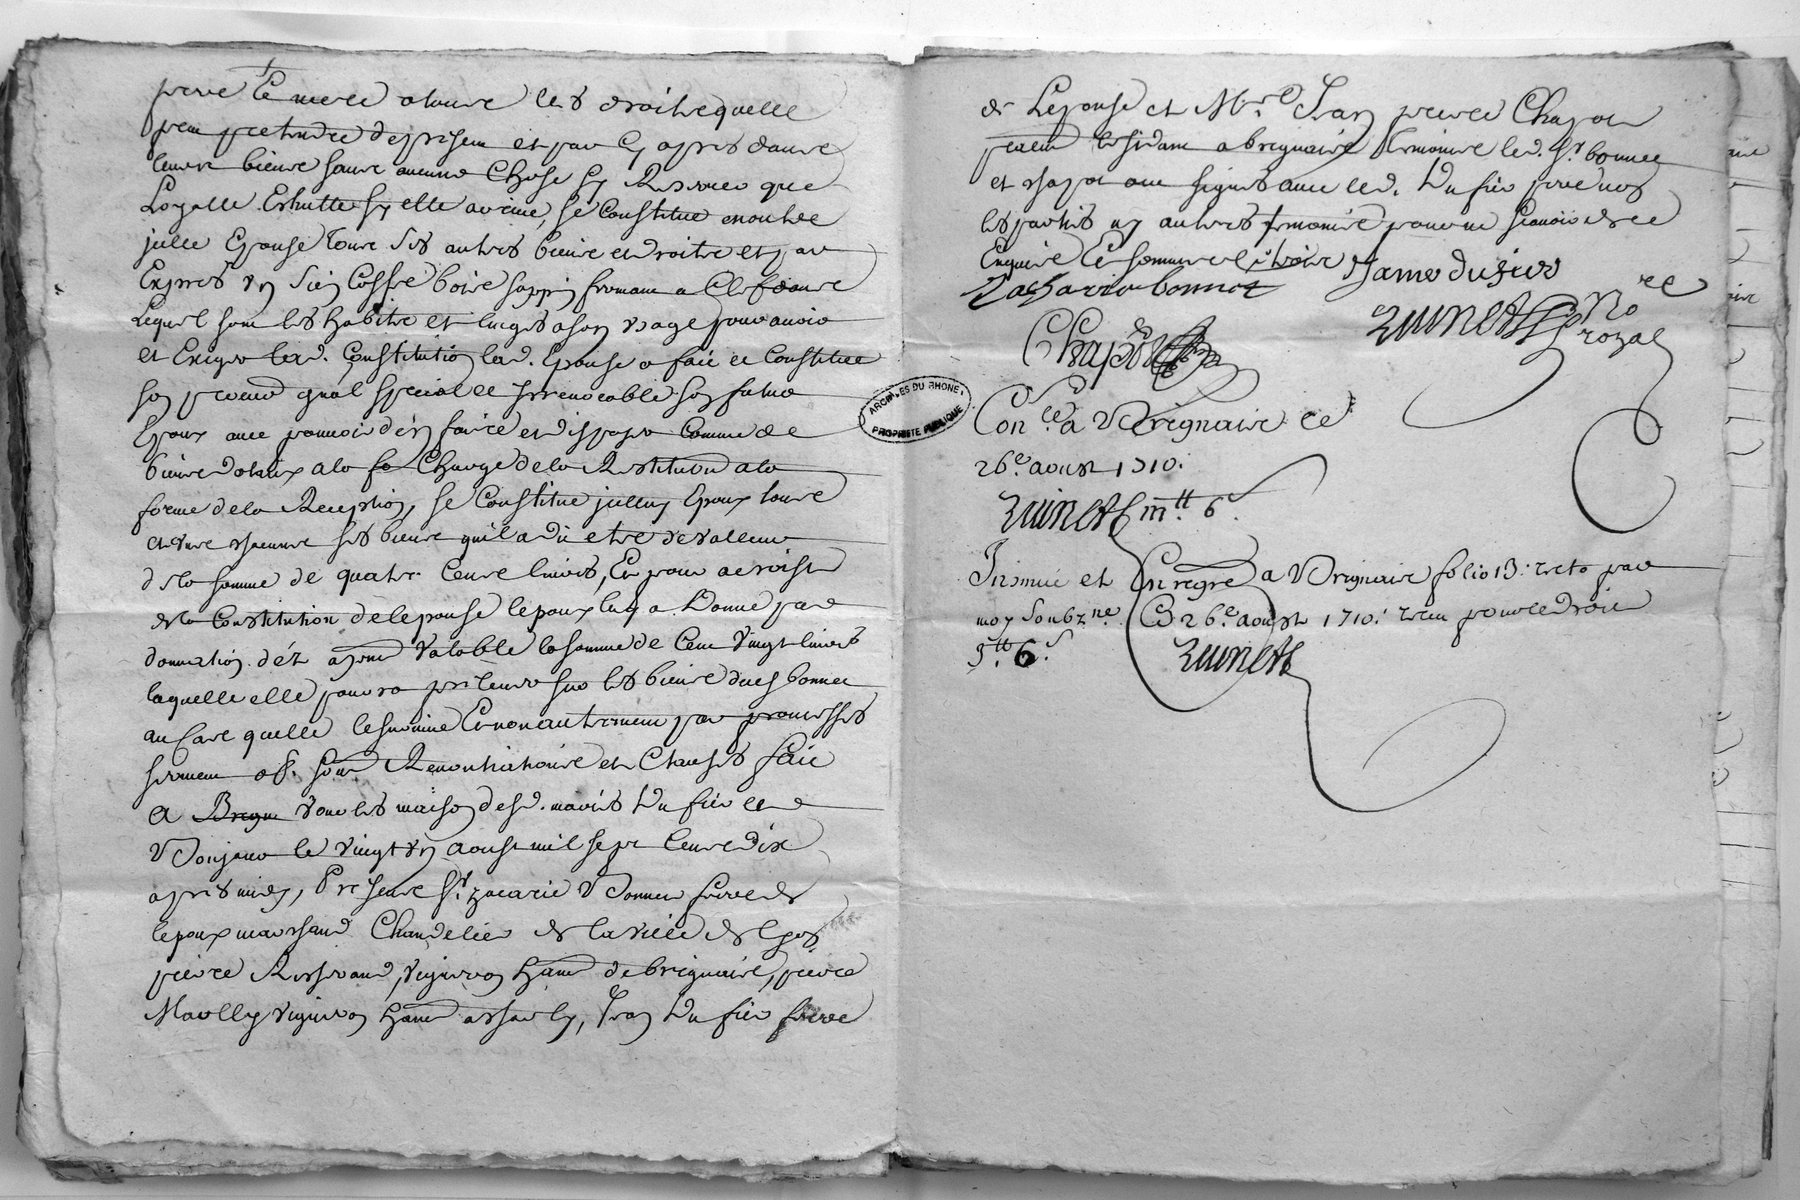 pere et mere a toutte les droits quelle
peut pretendre de presen et par cy apres dans
leurs biens sans aucune Chose sy Reserver que
Loyalle Eshutte sy elle avient, se Constitue en outre
jcelle Epouse tous ses autres biens et droits et par
Expres Un sien Coffre bois sappin fermant a Clef dans
Lequel sont les habits et linges a son usage pour avoir
et Exiger lad. Constitution lad. Epouse a fait et Constitue
son procur gnal special et Irrevocable son futur
Epoux avec pouvoir d'en faire et disposer Comme de
biens dotaux a la Charge de la Restitution a la
forme de la Reception, se Constitue jcelluy Epoux tous
et uns chacuns ses biens quil a dit etre de valleur
de la somme de quatre Cents livres, Et pour accroist
de la Constitution de lepouse lepoux luy a Donné par
donnation des a present Valable la somme de Cent Vingt livres
laquelle elle pourra prelever sur les biens dud. bonnet
au Cas quelle le survive Et non autrement par promesses
serment obl. soum. Renontiations et Clauses fait
A dans les maison desd. mariés Du fieu et
Donjaud le vingt un aoust mil sept Cents dix
apres midy, Presents Sr. zacarie Bonnet frere de
lepoux marchand Chandelier de la ville de Lyon
pierre vigneron hant de brignaire, pierre
vigneron hant a, Jean Du fieu frere
de Lepouse et Mre. Jean pierre Chapot
residant a brignaire temoins led. Sr. bonnet
et chapot ont signes avec led. Du fieu pere nos
les parties ny autres temoins pour ne scavoir de ce
Enquis Et sommes
Zacharrie bonnet Jame dufieu
Chapot
No re royal
Con. lé a Brignaire ce
26e. aoust 1710.
III tt 6 s
Insinué et Enregré a Brignaire folio 13. recto par
moy soubz né. Ce 26e. aoust 1710. receu pour le droit
3 tt. 6 s.
ARCHIVES DU RHONE
PROPRIETE PUBLIQUE